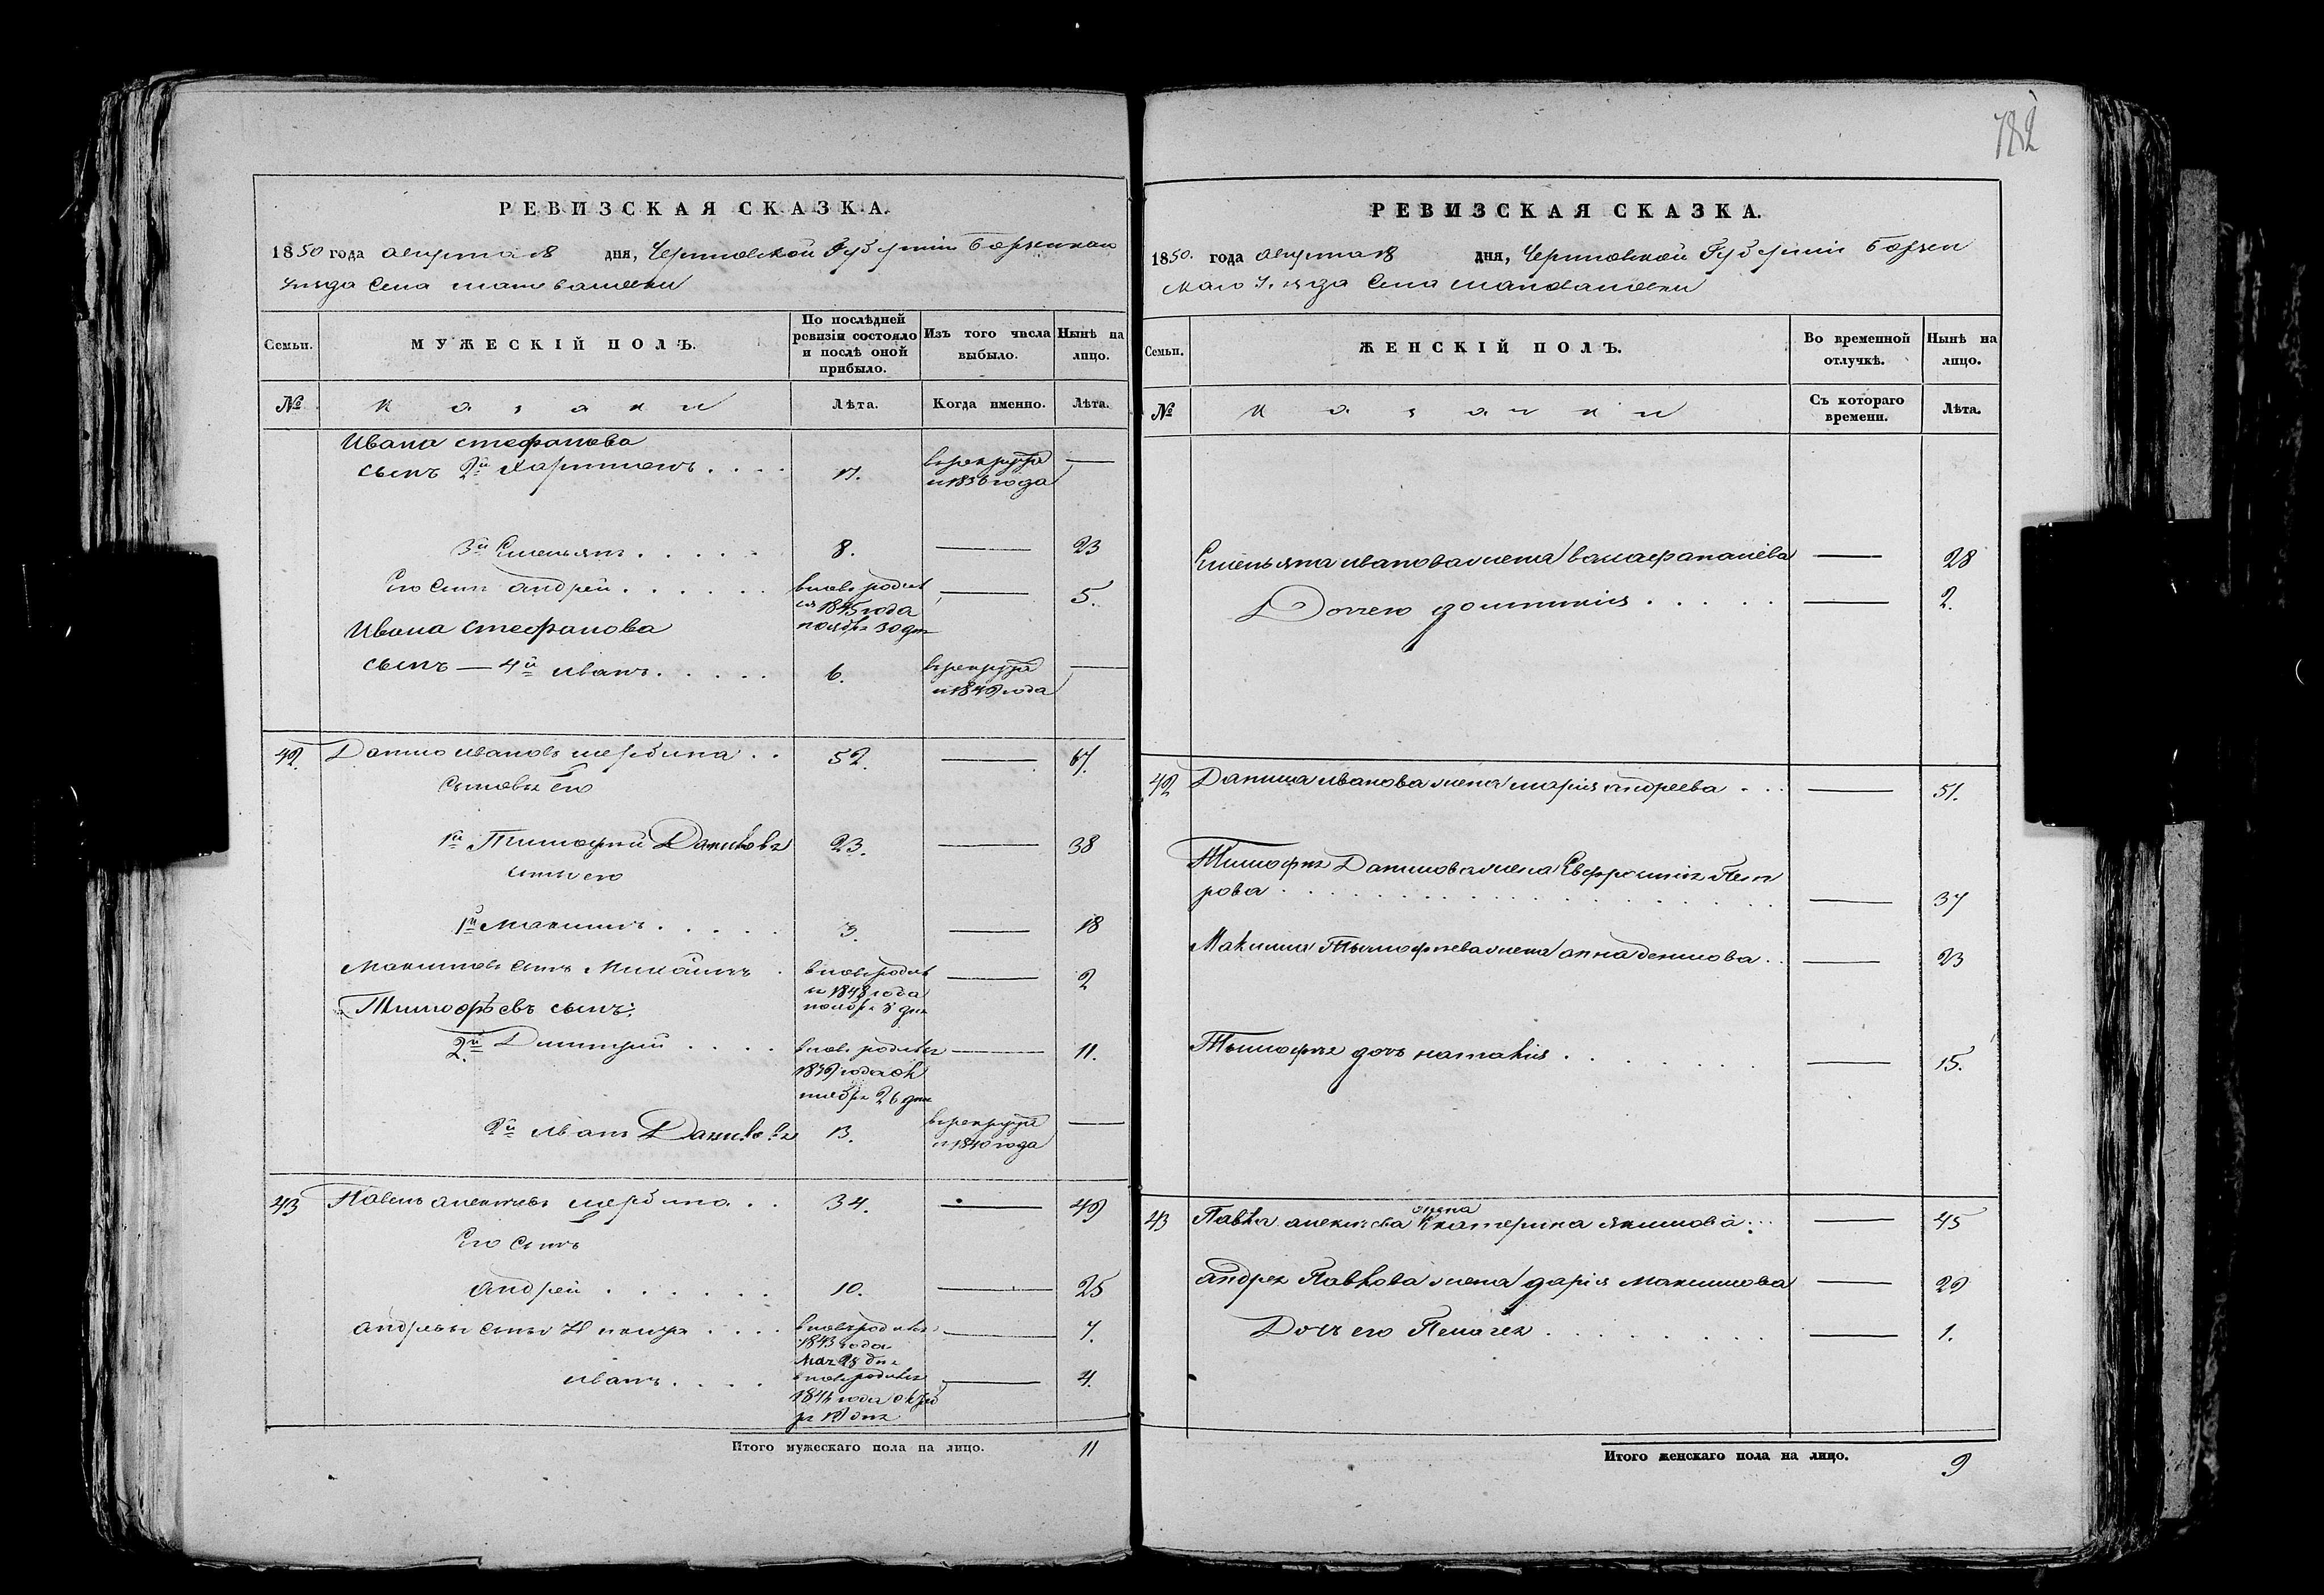 182
РЕВИЗСКАЯ СКАЗКА.
1850 года августа 18 дня, Черниговской Губернии Борзенскаго
уезда Села
МУЖЕСКІЙ ПОЛЪ.
Семьи.
По послѣдней ревизіи состояло и послѣ оной прибыло.
Изъ того числа выбыло.
Нынѣ на лицо.
№ Казаки Лѣта. Когда именно. Лѣта.
Ивана Стефанова
сынъ 2й Харитонъ . . . . 17. в рекрута —
с 1836 года
3й Емельянъ . . . . . 8. — 23
Его Сынъ андрей . . . . . . вновь родив — 5.
ся 1845 года
ноября 30 дня
Ивана Стефанова
сынъ — 4й иванъ . . . . . 6. в рекрута —
с 1849 года
42. Данило ивановъ щербина . . 52. — 67.
Сыновья Его
1й Тимофей Даниловъ 23. — 38
сыны его
1й Максимъ . . . . . 3. — 18
Максимовъ сынъ Михаилъ . вновь родив — 2
ся 1848 года
ноября 8 дня
Тимофѣевъ сынъ
2й Димитрий . . . . вновь родився — 11.
1839 года ок
тября 26 дня
2й иванъ Даниловъ 13. в рекрута —
с 1840 года
43 Павелъ алексѣевъ щербина . . 34. — 49
Его сынъ
андрей . . . . . . 10. — 25
андреевы сыны . . . . вновь родився — 7.
1843 года
мар 28 дня
иванъ . . . . вновь родився — 4.
1846 года октяб
ря 19 дня
Итого мужескаго пола на лицо. 11
РЕВИЗСКАЯ СКАЗКА.
1850. года августа 18 дня, Черниговской Губернии Борзен
скаго уезда Села
Семьи.
ЖЕНСКІЙ ПОЛЪ.
Во временной отлучкѣ.
Нынѣ на лицо.
№ Казачки Съ котораго времени. Лѣта.
Емельяна иванова жена васса фанасиева — 28
Дочь его домникия . . . . . — 2.
42 Данила иванова жена мария андреева . . . — 51.
Тимофея Данилова жена Евфросиния Пет
рова — 37
Максима Тимофеева жена анна денисова . . — 23
Тимофея дочь наталия . . . . . . — 15.
43 Павла алексѣева жена Екатерина якимова . . . — 45
андрея Павлова жена дария максимова — 29
Дочь его Пелагея . . . . . . . . — 1.
Итого женскаго пола на лицо. 9